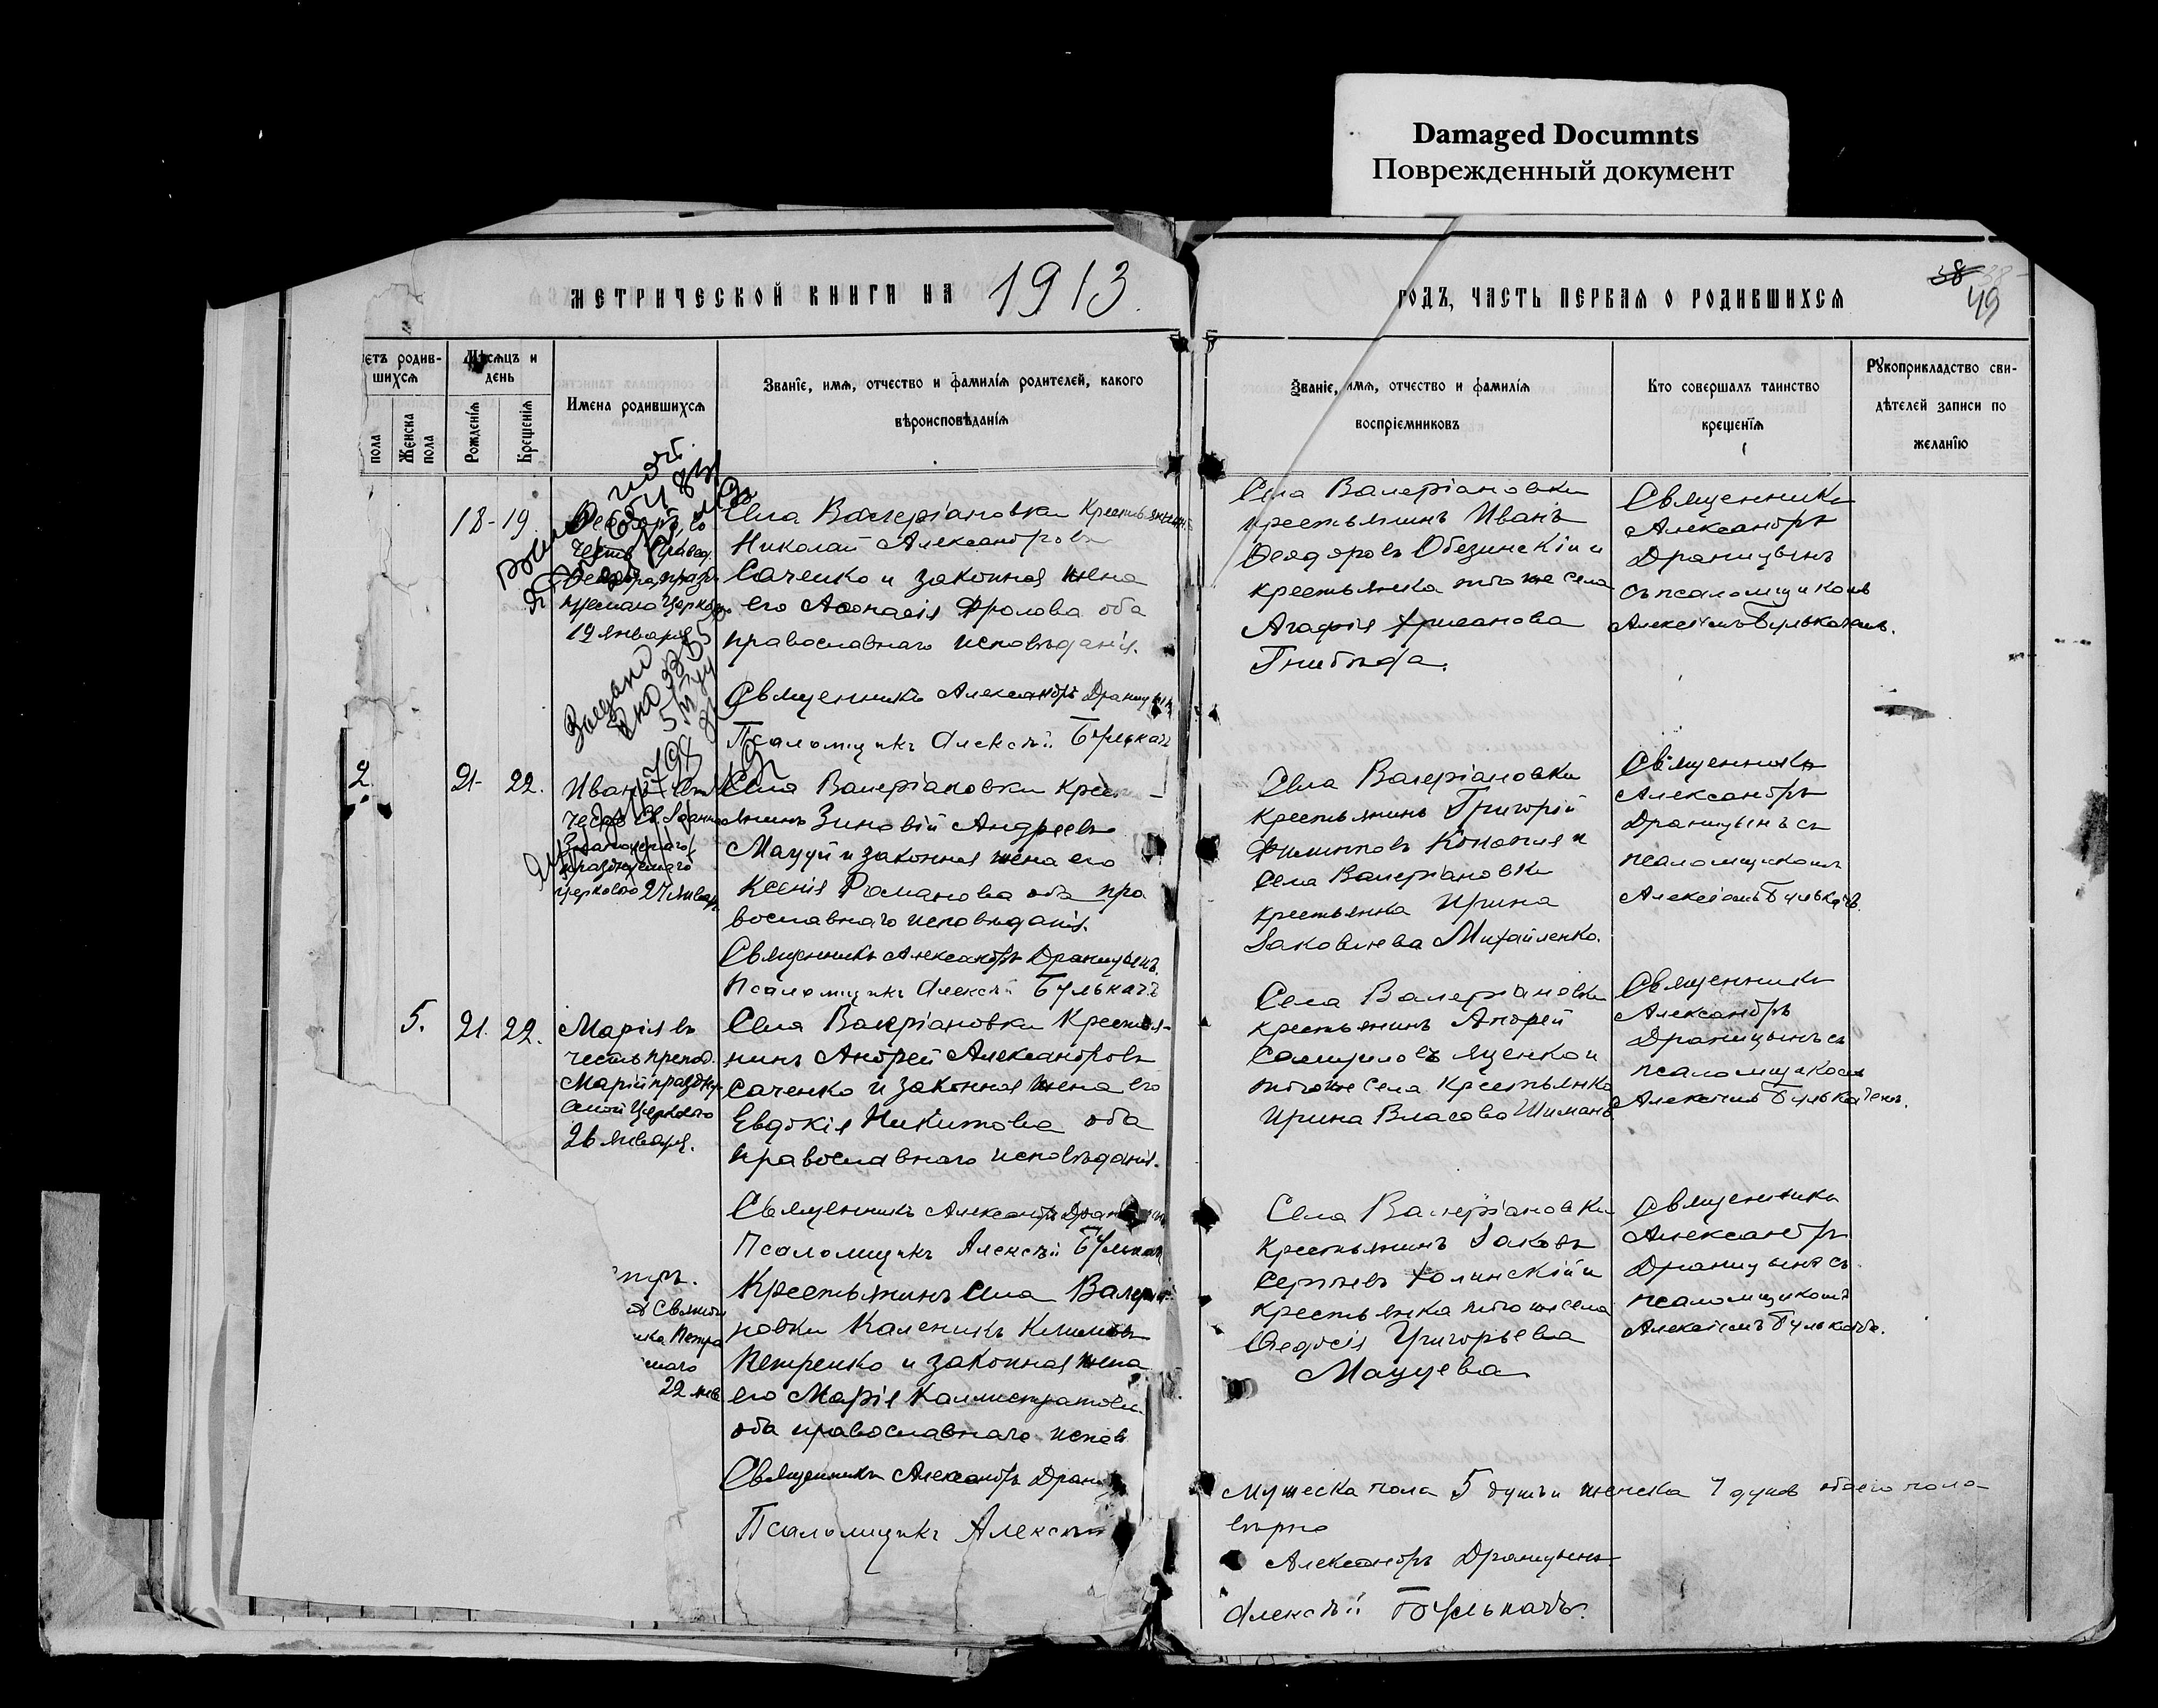 Damaged Documnts
Поврежденный документ
МЕТРИЧЕСКОЙ КНИГИ НА 1913.
ГОДЪ, ЧАСТЬ ПЕРВАЯ О РОДИВШИХСЯ
38
49
етъ родив-
шихся
пола
Женска
пола
Мѣсяцъ и
день
Рожденія
Крещенія
Имена родившихся
Званіе, имя, отчество и фамилія родителей, какого
вѣроисповѣданія
Званіе, имя, отчество и фамилія
воспріемниковъ
Кто совершалъ таинство
крещенія
Рукоприкладство сви-
дѣтелей записи по
желанію
18-19.
19 января
Села Валеріановки Крестьянинъ
Николай Александровъ
Саченко и законная жена
его Афонасія Фролова оба
православнаго исповѣданія.
Священникъ Александръ Драницынъ
Псаломщикъ Алексѣй Булькачъ
Села Валеріановки
крестьянинъ Иванъ
Феодоровъ Обезинскій и
крестьянка того же села
Агафія
Гнибѣда.
Священникъ
Александръ
Драницынъ
съ псаломщикомъ
Алексѣемъ Булькачемъ.
2
21- 22.
Иванъ
честь Св. Іоанна
Златоустаго
празднуемаго
Церковію 27 Январ.
Села Валеріановки Крест-
янинъ Зиновій Андреевъ
Мацуй и законная жена его
Ксенія Романова оба пра
вославнаго исповѣданія.
Священникъ Александръ Драницынъ.
Псаломщикъ Алексѣй Булькачъ
Села Валеріановки
крестьянинъ Григорій
Филипповъ Конопля и
Села Валеріановки
крестьянка Ирина
Іаковлева Михайленко.
Священникъ
Александръ
Драницынъ съ
псаломщикомъ
Алексѣемъ Булькачъ.
5. 21. 22.
Марія въ
честь препод.
Маріи праздну-
емой Церковію
26 Января.
Села Валеріановки Крестья-
нинъ Андрей Александровъ
Саченко и законная жена его
Евдокія Никитова оба
православнаго исповѣданія.
Священникъ Александръ Драницынъ
Псаломщикъ Алексѣй Булькачъ
Села Валеріановки
крестьянинъ Андрей
Самуиловъ Яценко и
того же села Крестьянка
Ирина Власова Шиманъ
Священникъ
Александръ
Драницынъ съ
псаломщикомъ
Алексѣемъ Булькачемъ.
етръ.
Святит
ика Петра
маго
22 янв
Крестьянинъ Села Валеріа
новки Каленикъ Климовъ
Петренко и законная жена
его Марія Каллистратова
оба православнаго испов
Священникъ Александръ Драни
Псаломщикъ Алексѣй
Села Валеріановки
Крестьянинъ Іаковъ
Сергѣевъ Холинскій и
крестьянка того же села
Феодосія Григорьева
Мацуева
Священникъ
Александръ
Драницынъ съ
псаломщикомъ
Алексѣемъ Булькачъ.
Мужеска пола 5 душъ и женска 7 душъ обоего пола
вѣрно
Александръ Драницынъ
Алексѣй Булькачъ.